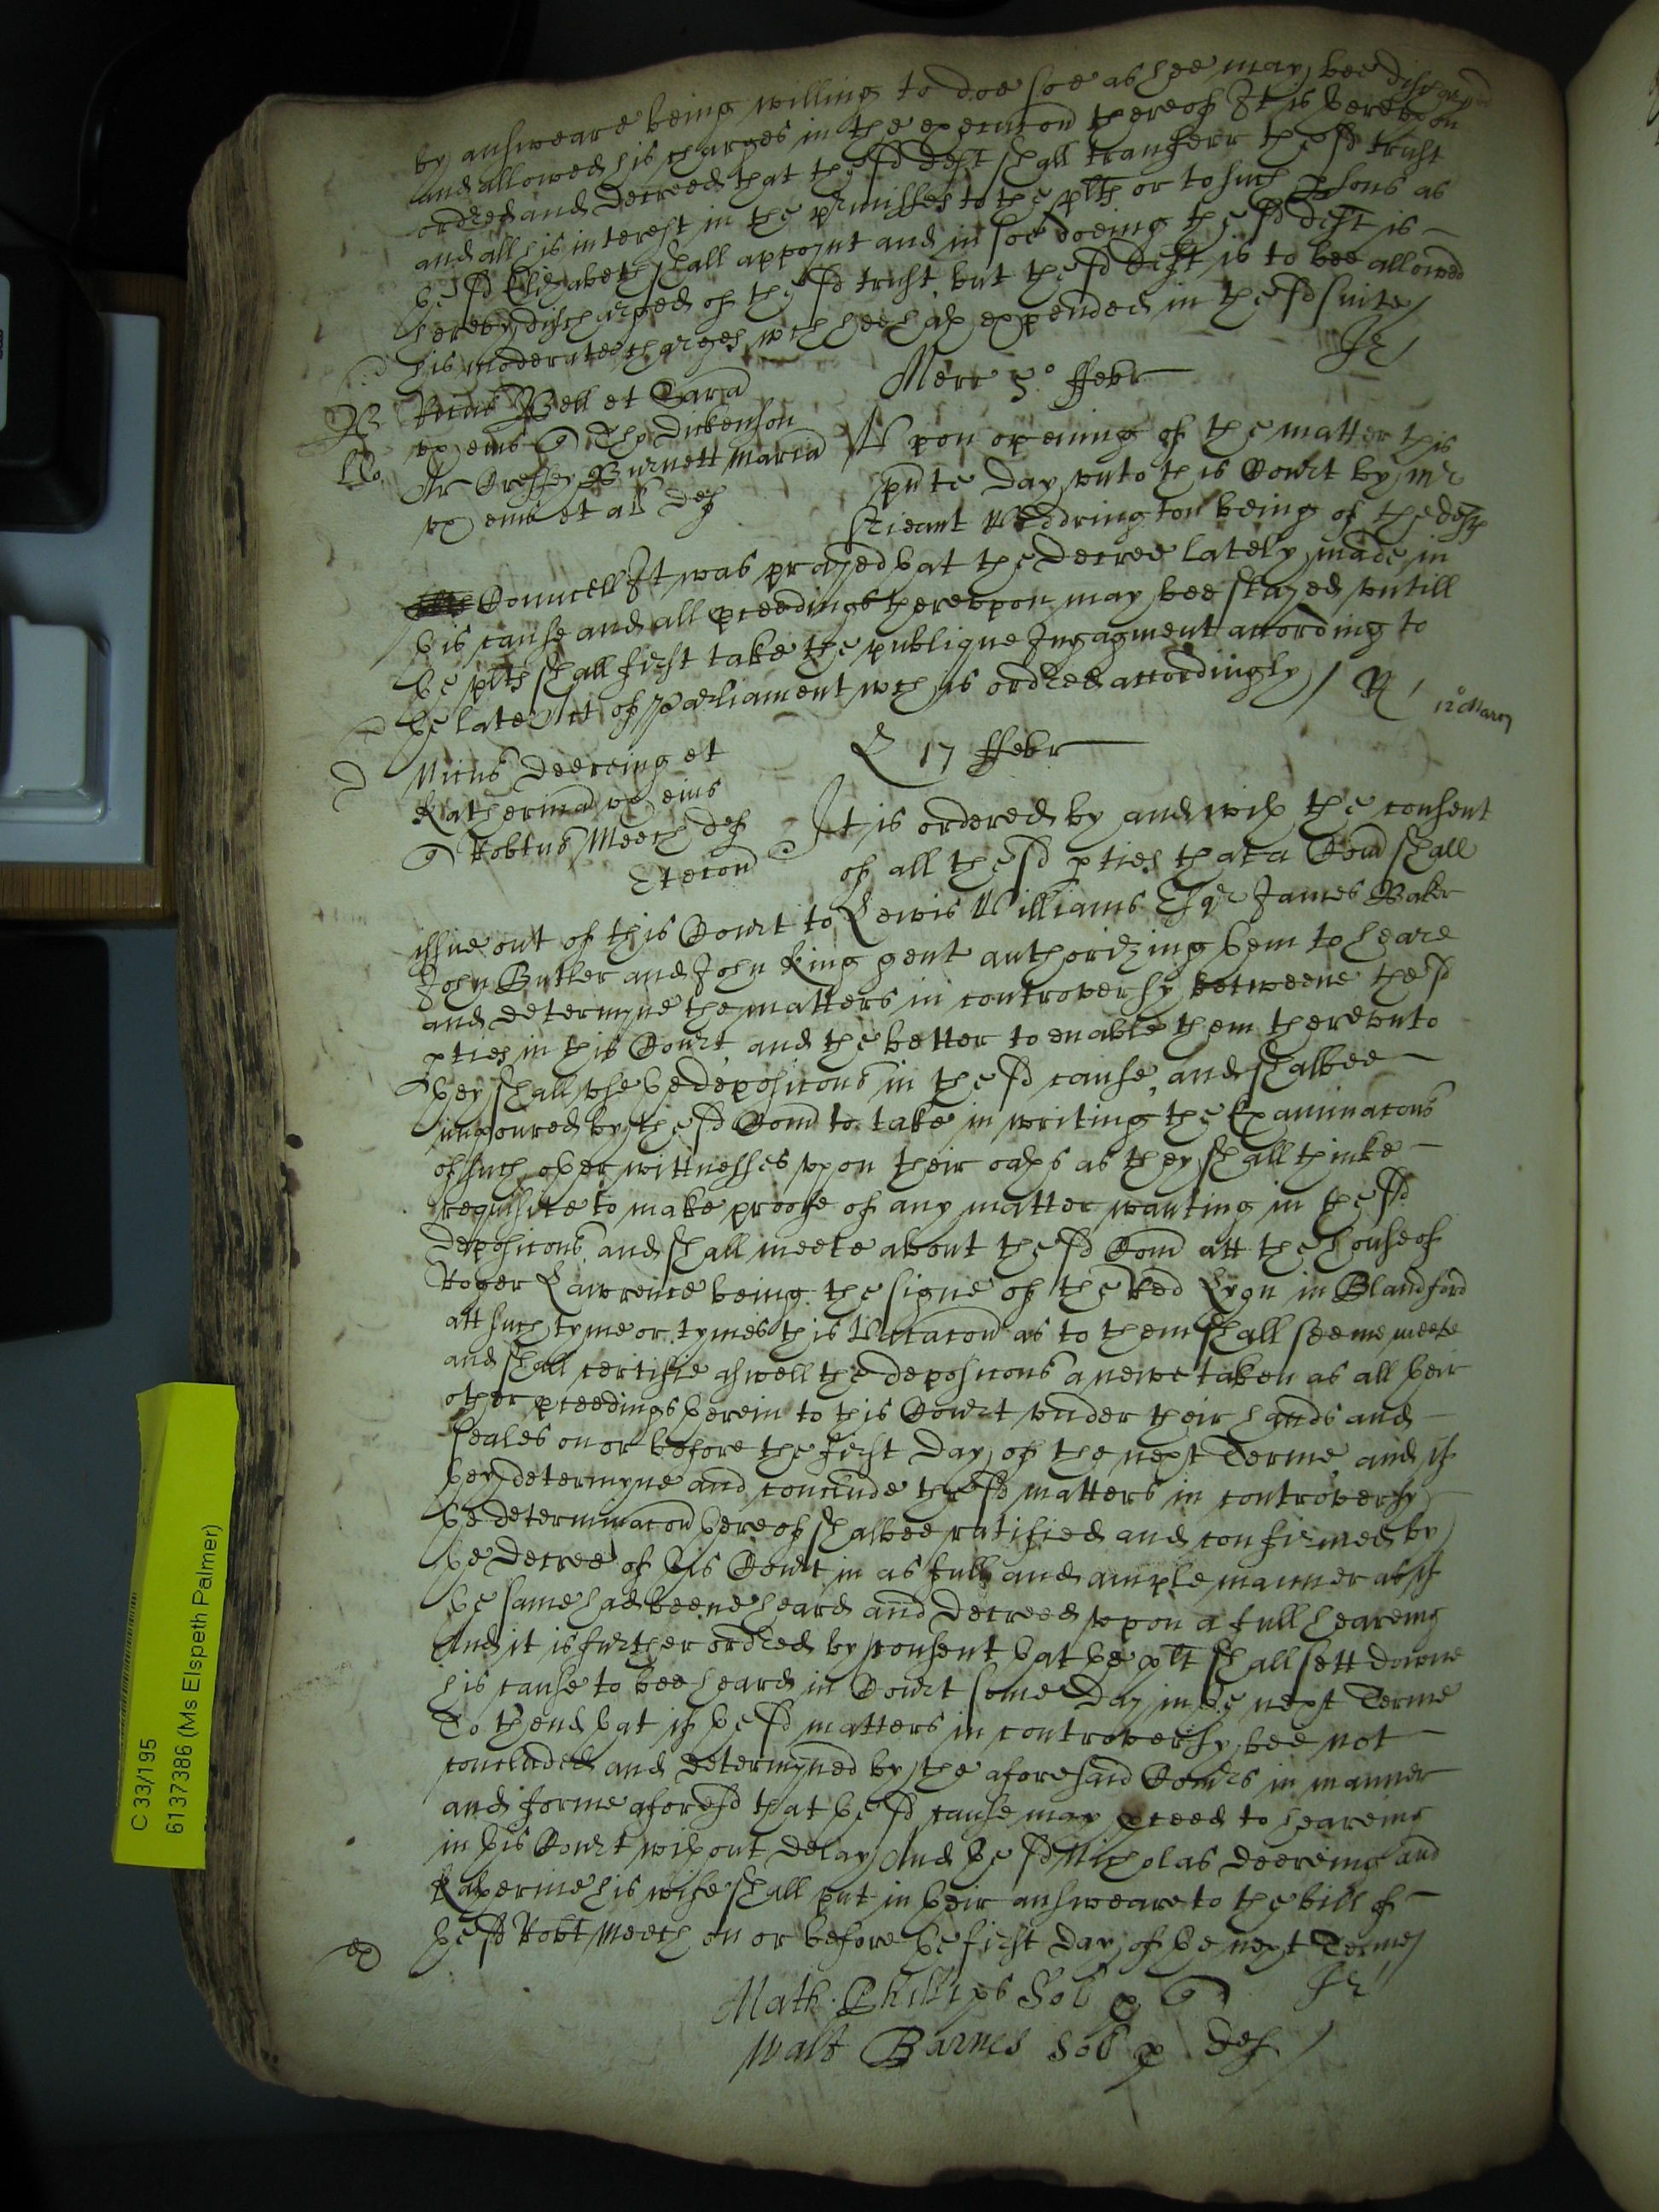 by answeare being willing to doe soe as hee may bee discharged
and allowed his charges in the execucon thereof It is therevpon
ordred and decreed that the sd deft shall transferr the sd trust
and all his interest in the pmisses to the plts or to such psons as
the sd Elizabeth shall appoynt and in soe doeing the sd deft is
hereby discharged of the sd trust but the sd deft is to bee allowed
his moderate charges wch hee hath expended in the sd suite
Merc 5o ffebr
Bell et Sara
vx eius Dickenson
Cressey Burnett Maria
vx eius et al def
Vpon opening of the matter this
pnte day vnto this Court by Mr
Sricant Weddrington being of the defts
Councell It was prayed that the decree lately made in
this cause and all pceedings therevpon may bee stayed vntill
the plts shall first take the publique Ingagment according to
the late Act of Parliament wch is ordred accordingly R
12o Marcij
17 ffebr
Nicus Deereing et
Katherina vx eius
Robtus Meech def
Et econ
It is ordered by and with the consent
of all the sd pties that a Com shall
issue out of this Court to Lewis Williams Esqr James Baker
John Butler and John King gent authorizing them to heare
and determyne the matters in controversy betweene the sd
pties in this Court and the better to enable them therevnto
they shall vse the deposicons in the sd cause and shalbee
impoured by the sd Com to take in writing the Examinacons
of such other wittnesses vpon their oaths as they shall thinke
requisite to make proofe of any matter wanting in the sd
deposicons and shall meete about the sd Com att the house of
Roger Lawrence being the signe of the Red Lyon in Blandford
att such tyme or tymes this Vacacon as to them shall seeme meete
and shall certifie aswell the deposicons anewe taken as all their
other pceedings therein to this Court vnder their hands and
seales on or before the first day of the next Terme and if
they determyne and conclude the sd matters in controversy
the determinacon thereof shalbee ratified and confirmed by
the decree of this Court in as full and ample manner as if
the same had beene heard and decreed vpon a full heareing
And it is further ordred by consent that the plt shall sett downe
his cause to bee heard in Court some day in the next Terme
To thend that if the sd matters in controversy bee not
concluded and determyned by the aforesaid Comrs in manner
and forme aforesd that the sd cause may pceed to heareing
in this Court without delay And the sd Nicholas Deereing and
Katherine his wife shall put in their answeare to the bill of
the sd Robt Meech on or before the first day of the next Terme
Math. Phillips Sol p
Walt Barnes Sol p def
C 33/195
6137386 (Ms Elspeth Palmer)